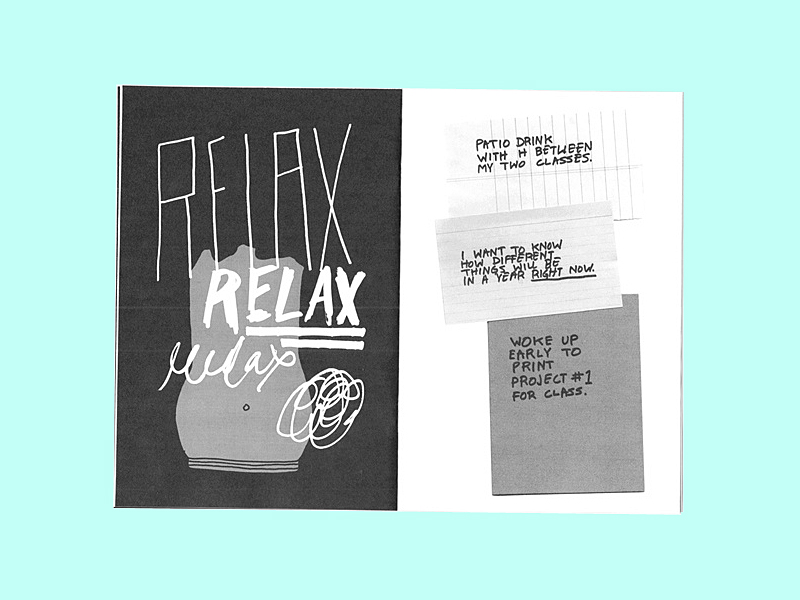 RELAX
RELAX
relax
PATIO DRINK
WITH H BETWEEN
MY TWO CLASSES.
I WANT TO KNOW
HOW DIFFERENT
THINGS WILL BE
IN A YEAR RIGHT NOW.
WOKE UP
EARLY TO
PRINT
PROJECT #1
FOR CLASS.